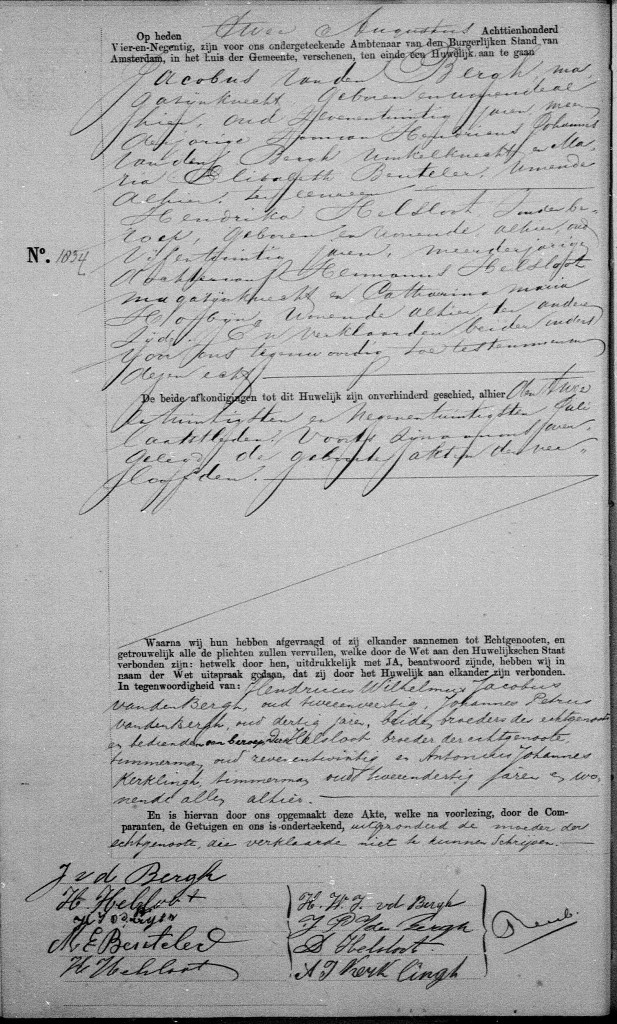 Op heden Twee Augustus Achttienhonderd
Vier-en-Negentig, zijn voor ons ondergeteekende Ambtenaar van den Burgerlijken Stand van
Amsterdam, in het huis der Gemeente, verschenen, ten einde een Huwelijk aan te gaan
Jacobus van den Bergh, ma-
gazijnknecht, geboren en wonende al-
hier, oud zevenentwintig jaren, meer-
derjarige zoon van Hendricus Johannes
van den Bergh, winkelknecht en Ma-
ria Elisabeth Benteler, wonende
alhier, ter eenre en
Hendrika Helsloot, zonder be-
roep, geboren en wonende alhier, oud
No. 1834
vijfentwintig jaren, meerderjarige
dochter van Hermanus Helsloot
magazijnknecht en Catharina Maria
wonende alhier ter andere
zijde. En verklaarden beider ouders
voor ons tegenwoordig toe te stemmen in
dezen echt
De beide afkondigingen tot dit Huwelijk zijn onverhinderd geschied, alhier den Twee
en twintigsten en Negenentwintigsten Juli
laatstleden. Voorts zijn aan ons over-
gelegd de geboorte akten der ver-
loofden.
Waarna wij hun hebben afgevraagd of zij elkander aannemen tot Echtgenooten, en
getrouwelijk alle de plichten zullen vervullen, welke door de Wet aan den Huwelijkschen Staat
verbonden zijn: hetwelk door hen, uitdrukkelijk met JA, beantwoord zijnde, hebben wij in
naam der Wet uitspraak gedaan, dat zij door het Huwelijk aan elkander zijn verbonden.
In tegenwoordigheid van: Hendricus Wilhelmus Jacobus
van den Bergh, oud tweeenveertig, Johannes Petrus
van den Bergh, oud dertig jaren, beide broeders des echtgenoots
en bedienden van beroep, Helsloot broeder der echtgenoote,
timmerman, oud zevenentwintig en Antonius Johannes
Kerklingh, timmerman oud tweeendertig jaren en wo-
nende allen alhier.
En is hiervan door ons opgemaakt deze Akte, welke na voorlezing, door de Com-
paranten, de Getuigen en ons is onderteekend, uitgezonderd de moeder der
echtgenoote, die verklaarde niet te kunnen schrijven.
J v d Bergh
H. Helsloot
M E Benteler
H Helsloot
H. W. J. vd Bergh
J P v den Bergh
D Helsloot
A J Kerklingh